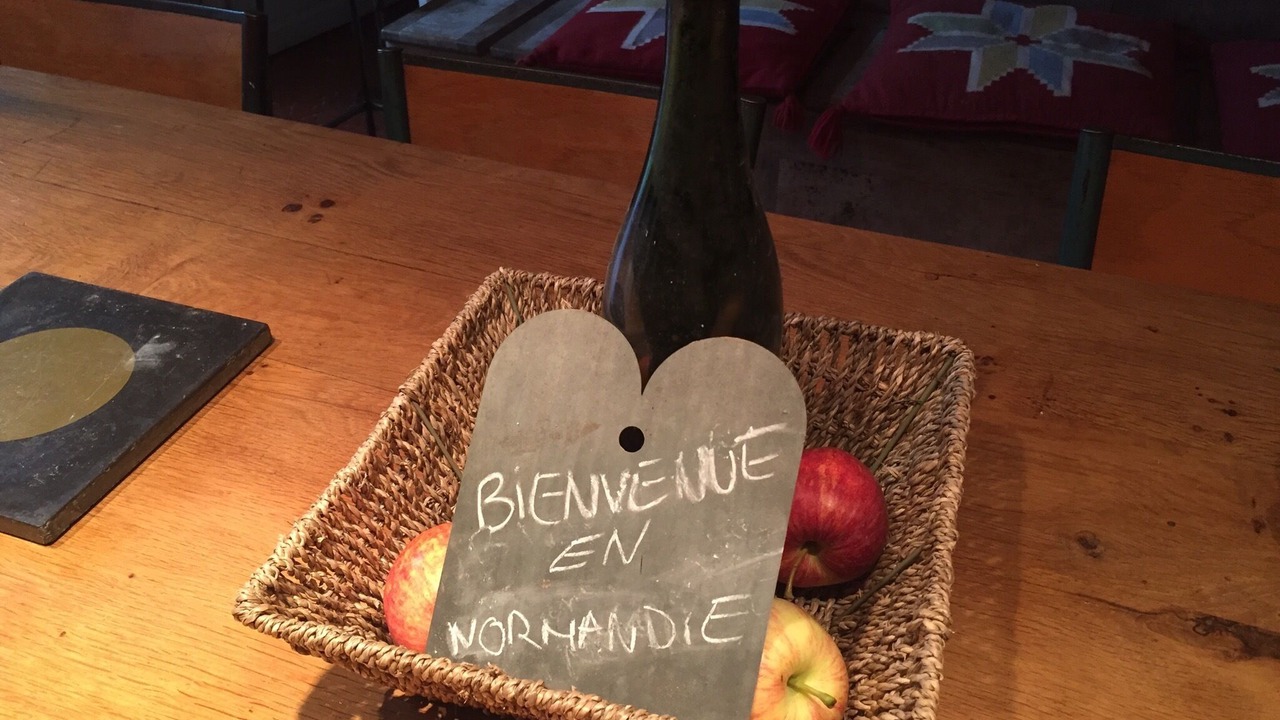 BIENVENUE
EN
NORMANDIE